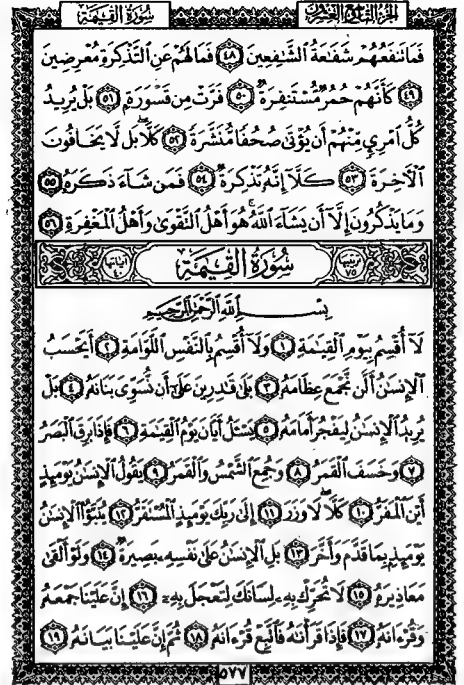 سُورَةُ القِيَامَةِ الجزء التاسع والعشرون
فَمَا تَنفَعُهُمْ شَفَٰعَةُ ٱلشَّٰفِعِينَ ٤٨ فَمَا لَهُمْ عَنِ ٱلتَّذْكِرَةِ مُعْرِضِينَ
٤٩ كَأَنَّهُمْ حُمُرٌ مُّسْتَنفِرَةٌ ٥٠ فَرَّتْ مِن قَسْوَرَةٍ ٥١ بَلْ يُرِيدُ
كُلُّ ٱمْرِئٍ مِّنْهُمْ أَن يُؤْتَىٰ صُحُفًا مُّنَشَّرَةً ٥٢ كَلَّا ۖ بَل لَّا يَخَافُونَ
ٱلْأَخِرَةَ ٥٣ كَلَّآ إِنَّهُۥ تَذْكِرَةٌ ٥٤ فَمَن شَآءَ ذَكَرَهُۥ ٥٥
وَمَا يَذْكُرُونَ إِلَّآ أَن يَشَآءَ ٱللَّهُ ۚ هُوَ أَهْلُ ٱلتَّقْوَىٰ وَأَهْلُ ٱلْمَغْفِرَةِ ٥٦
ترتيبها ٧٥ سُورَةُ القِيَامَةِ آياتها ٤٠
بِسْمِ ٱللَّهِ ٱلرَّحْمَٰنِ ٱلرَّحِيمِ
لَآ أُقْسِمُ بِيَوْمِ ٱلْقِيَٰمَةِ ١ وَلَآ أُقْسِمُ بِٱلنَّفْسِ ٱللَّوَّامَةِ ٢ أَيَحْسَبُ
ٱلْإِنسَٰنُ أَلَّن نَّجْمَعَ عِظَامَهُۥ ٣ بَلَىٰ قَٰدِرِينَ عَلَىٰٓ أَن نُّسَوِّىَ بَنَانَهُۥ ٤ بَلْ
يُرِيدُ ٱلْإِنسَٰنُ لِيَفْجُرَ أَمَامَهُۥ ٥ يَسْـَٔلُ أَيَّانَ يَوْمُ ٱلْقِيَٰمَةِ ٦ فَإِذَا بَرِقَ ٱلْبَصَرُ
٧ وَخَسَفَ ٱلْقَمَرُ ٨ وَجُمِعَ ٱلشَّمْسُ وَٱلْقَمَرُ ٩ يَقُولُ ٱلْإِنسَٰنُ يَوْمَئِذٍ
أَيْنَ ٱلْمَفَرُّ ١٠ كَلَّا لَا وَزَرَ ١١ إِلَىٰ رَبِّكَ يَوْمَئِذٍ ٱلْمُسْتَقَرُّ ١٢ يُنَبَّؤُا۟ ٱلْإِنسَٰنُ
يَوْمَئِذٍۭ بِمَا قَدَّمَ وَأَخَّرَ ١٣ بَلِ ٱلْإِنسَٰنُ عَلَىٰ نَفْسِهِۦ بَصِيرَةٌ ١٤ وَلَوْ أَلْقَىٰ
مَعَاذِيرَهُۥ ١٥ لَا تُحَرِّكْ بِهِۦ لِسَانَكَ لِتَعْجَلَ بِهِۦٓ ١٦ إِنَّ عَلَيْنَا جَمْعَهُۥ
وَقُرْءَانَهُۥ ١٧ فَإِذَا قَرَأْنَٰهُ فَٱتَّبِعْ قُرْءَانَهُۥ ١٨ ثُمَّ إِنَّ عَلَيْنَا بَيَانَهُۥ ١٩
٥٧٧